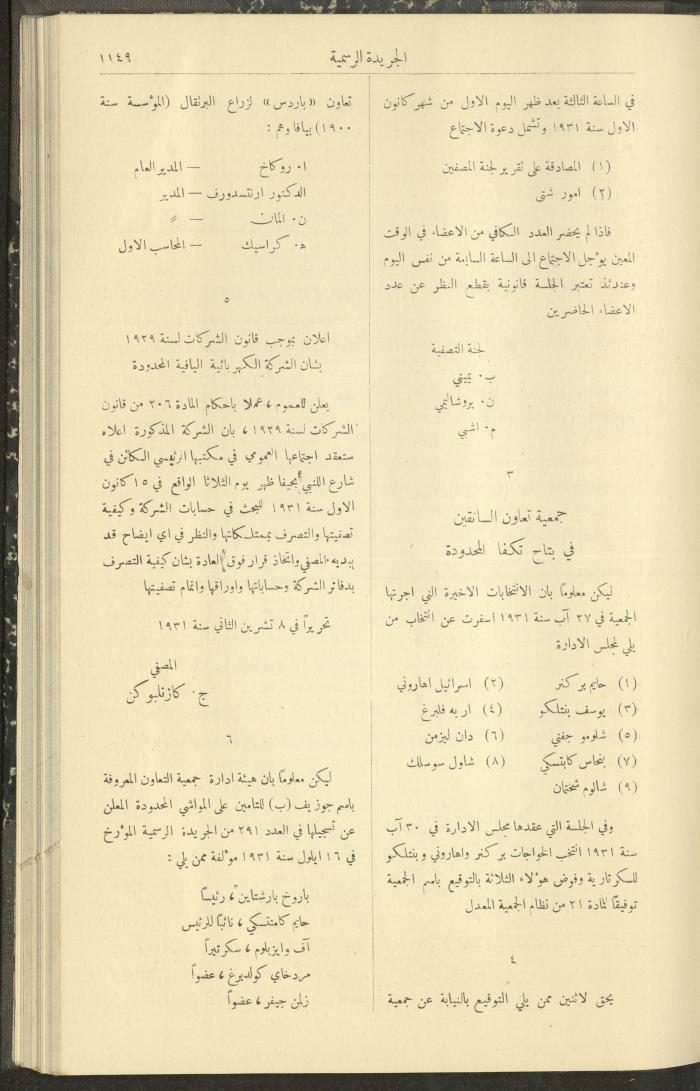 الجريدة الرسمية
١١٤٩
في الساعة الثالثة بعد ظهر اليوم الاول من شهر كانون
الاول سنة ١٩٣١ وتشمل دعوة الاجتماع
(١) المصادقة على تقرير لجنة المصفين
(٢) امور شتى
فاذا لم يحضر العدد الكافي من الاعضاء في الوقت
المعين يوٴجل الاجتماع الى الساعة السابعة من نفس اليوم
وعندئذ تعتبر الجلسة قانونية بقطع النظر عن عدد
الاعضاء الحاضرين
لجنة التصفية
ب٠ يميني
ن٠ يروشاليمي
م٠ اشبي
٣
جمعية تعاون السائقين
في بتاح تكفا المحدودة
ليكن معلومًا بان الانتخابات الاخيرة التي اجرتها
الجمعية في ٢٧ آب سنة ١٩٣١ اسفرت عن انتخاب من
يلي لمجلس الادارة
(١) حايم بركنر (٢) اسرائيل اهاروني
(٣) يوسف بنتلكو (٤) اربه فلبرغ
(٥) شلومو جفني (٦) دان ليزمن
(٧) بنحاس كابتسكي (٨) شاول سوسلك
(٩) شالوم شختمان
وفي الجلسة التي عقدها مجلس الادارة في ٣٠ آب
سنة ١٩٣١ انتخب الخواجات بركنر واهاروني وبنتلكو
للسكرتارية وفوض هوٴلاء الثلاثة بالتوقيع باسم الجمعية
توفيقًا للمادة ٢١ من نظام الجمعية المعدل
٤
يحق لاثنين ممن يلي التوقيع بالنيابة عن جمعية
تعاون «باردس» لزراع البرتقال (الموٴسسة سنة
١٩٠٠) بيافا وهم :
ا٠ روكاخ — المدير العام
الدكتور ارنتسدورف — المدير
ن٠ المان —〃
ه٠ كراسيك — المحاسب الاول
٥
اعلان بموجب قانون الشركات لسنة ١٩٢٩
بشان الشركة الكهربائية اليافية المحدودة
يعلن للعموم ، عملا باحكام المادة ٢٠٦ من قانون
الشركات لسنة ١٩٢٩ ، بان الشركة المذكورة اعلاه
ستعقد اجتماعها العمومي في مكتبها الرئيسي الكائن في
شارع اللنبي بحيفا ظهر يوم الثلاثا الواقع في ١٥ كانون
الاول سنة ١٩٣١ للبحث في حسابات الشركة وكيفية
تصفيتها والتصرف بممتلكاتها والنظر في اي ايضاح قد
يبديه المصفي واتخاذ قرار فوق العادة بشان كيفية التصرف
بدفاتر الشركة وحساباتها واوراقها واتمام تصفيتها
تحريرًا في ٨ تشرين الثاني سنة ١٩٣١
المصفي
ج٠ كازنلبوكن
٦
ليكن معلومًا بان هيئة ادارة جمعية التعاون المعروفة
باسم جوزيف (ب) للتامين على المواشي المحدودة المعلن
عن تسجيلها في العدد ٢٩١ من الجريدة الرسمية الموٴرخ
في ١٦ ايلول سنة ١٩٣١ موٴلفة ممن يلي :
باروخ بارشتاين ، رئيسًا
حايم كامنتسكي ، نائبًا للرئيس
آف وايزبلوم ، سكرتيرًا
مردخاي كولديرغ ، عضوًا
زلمن جيفر ، عضوًا